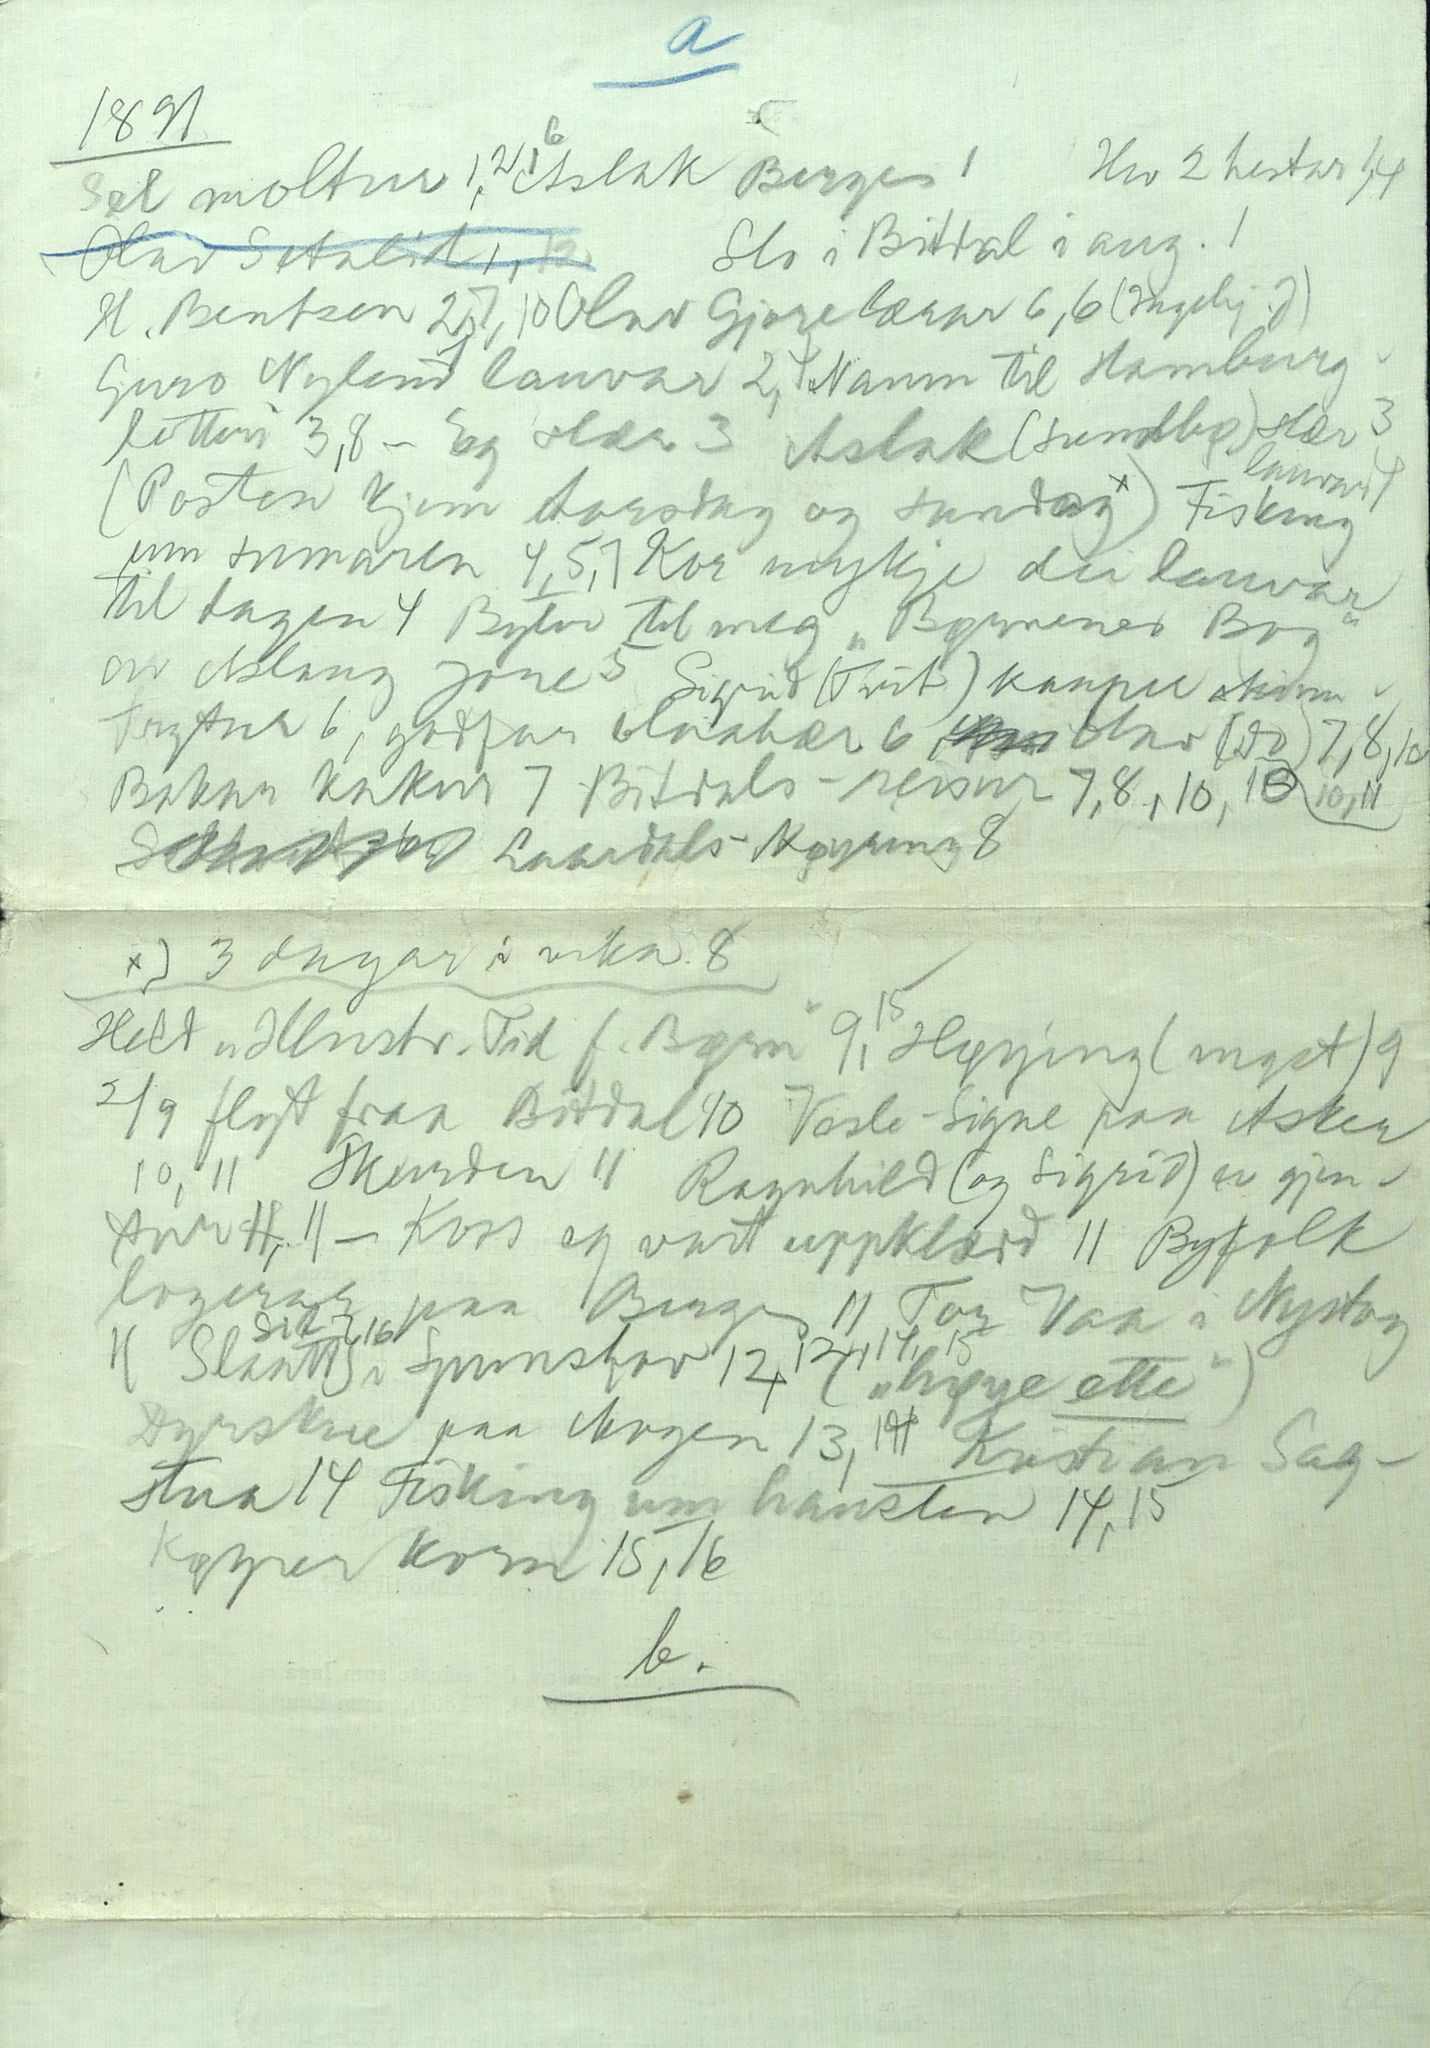 a
1891
Sel moltur 1, 2, 6 Aslak Berge 1 Hev 2 hestar 1,4
Olav Setalid 1,
Slo i Bitdal i aug. 1
H. Bentsen 2, 7, 10 Olav Gjore lærar 6, 6 (Ingebj. J)
Guro Nylend lauvar 2, 4 Namn til Hamburg
lotteri 3,8 – Eg slær 3 Aslak (sundbø) slær 3
lauvar 4
(Posten kjem torsdag og sundag x) Fisking
um sumaren 4,5,7 Kor mykje dei lauvar
til dagen 4 Byter til meg "Børnenes Bog"
av Aslaug 5 Sigrid (Tveit) kauper
6, godfar 6 Olav (do) 7,8,10
Bakar kakur 7 Bitdals-reisur 7,8, 10, 10, 11
Laardals-køyring 8
x) 3 dagar i vika 8
Held "Illustr. Tid f. Børn" 9, 15 Høying (myst) 9
2/9 flyt fraa Bitdal 10 Vesle-Signe paa Asker
10, 11 Skurden 11 Ragnhild (og Sigrid) er gjen-
tur 11 – Koss eg vart uppklædd 11 Byfolk
logerar paa Berge 11 Tor Vaa i Nystog
11 Slaatt i 12, 12, 14, 15 ("høye etti")
Dyrskue paa Mogen 13, 14 Kristian Sag-
stua 14 Fisking um hausten 14, 15
Køyrer korn 15, 16
b.